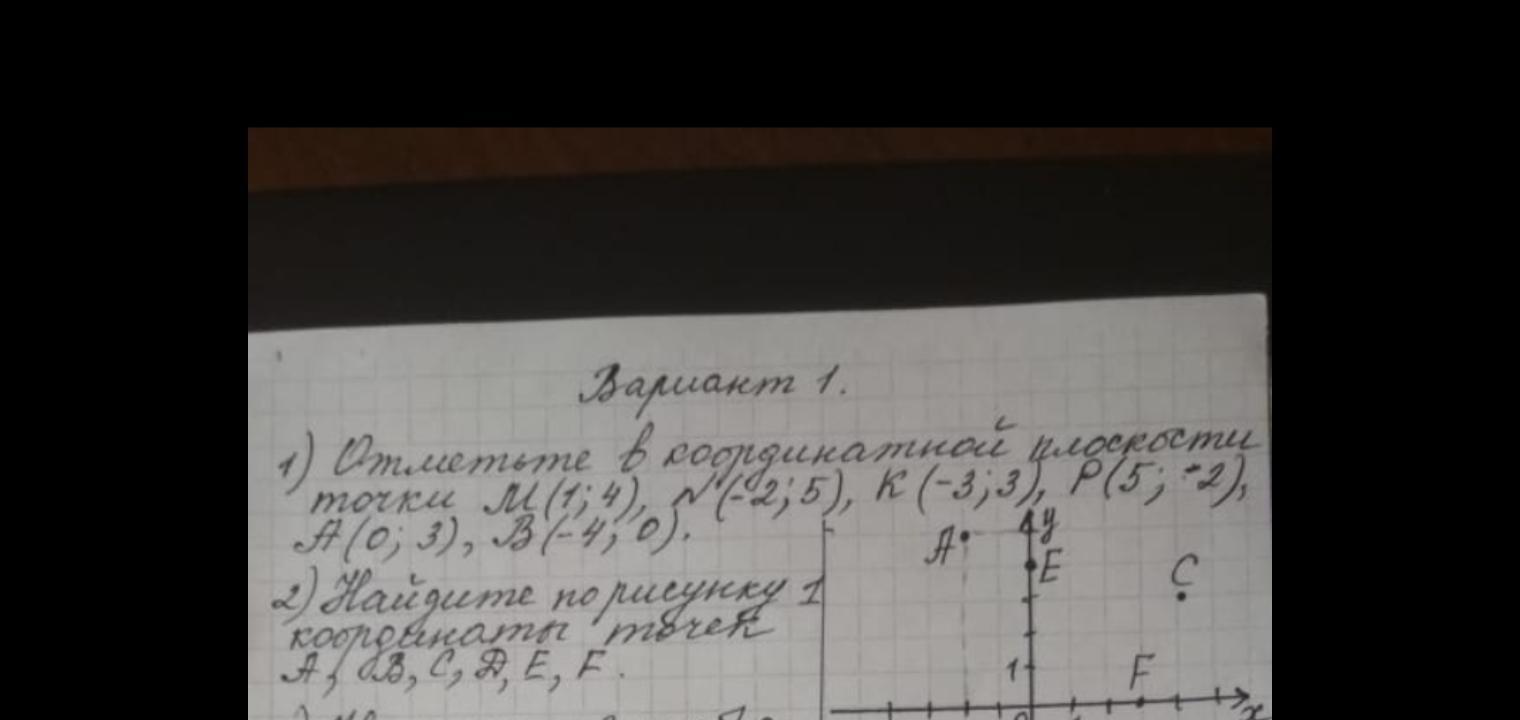 Вариант 1.
1) Отметьте в координатной плоскости
точки М(1; 4), N(-2; 5), К(-3; 3), Р(5; -2),
А(0; 3), В(-4; 0).
2) Найдите по рисунку 1
координаты точек
А, В, С, D, Е, F.
A
y
E
C
1
F
x